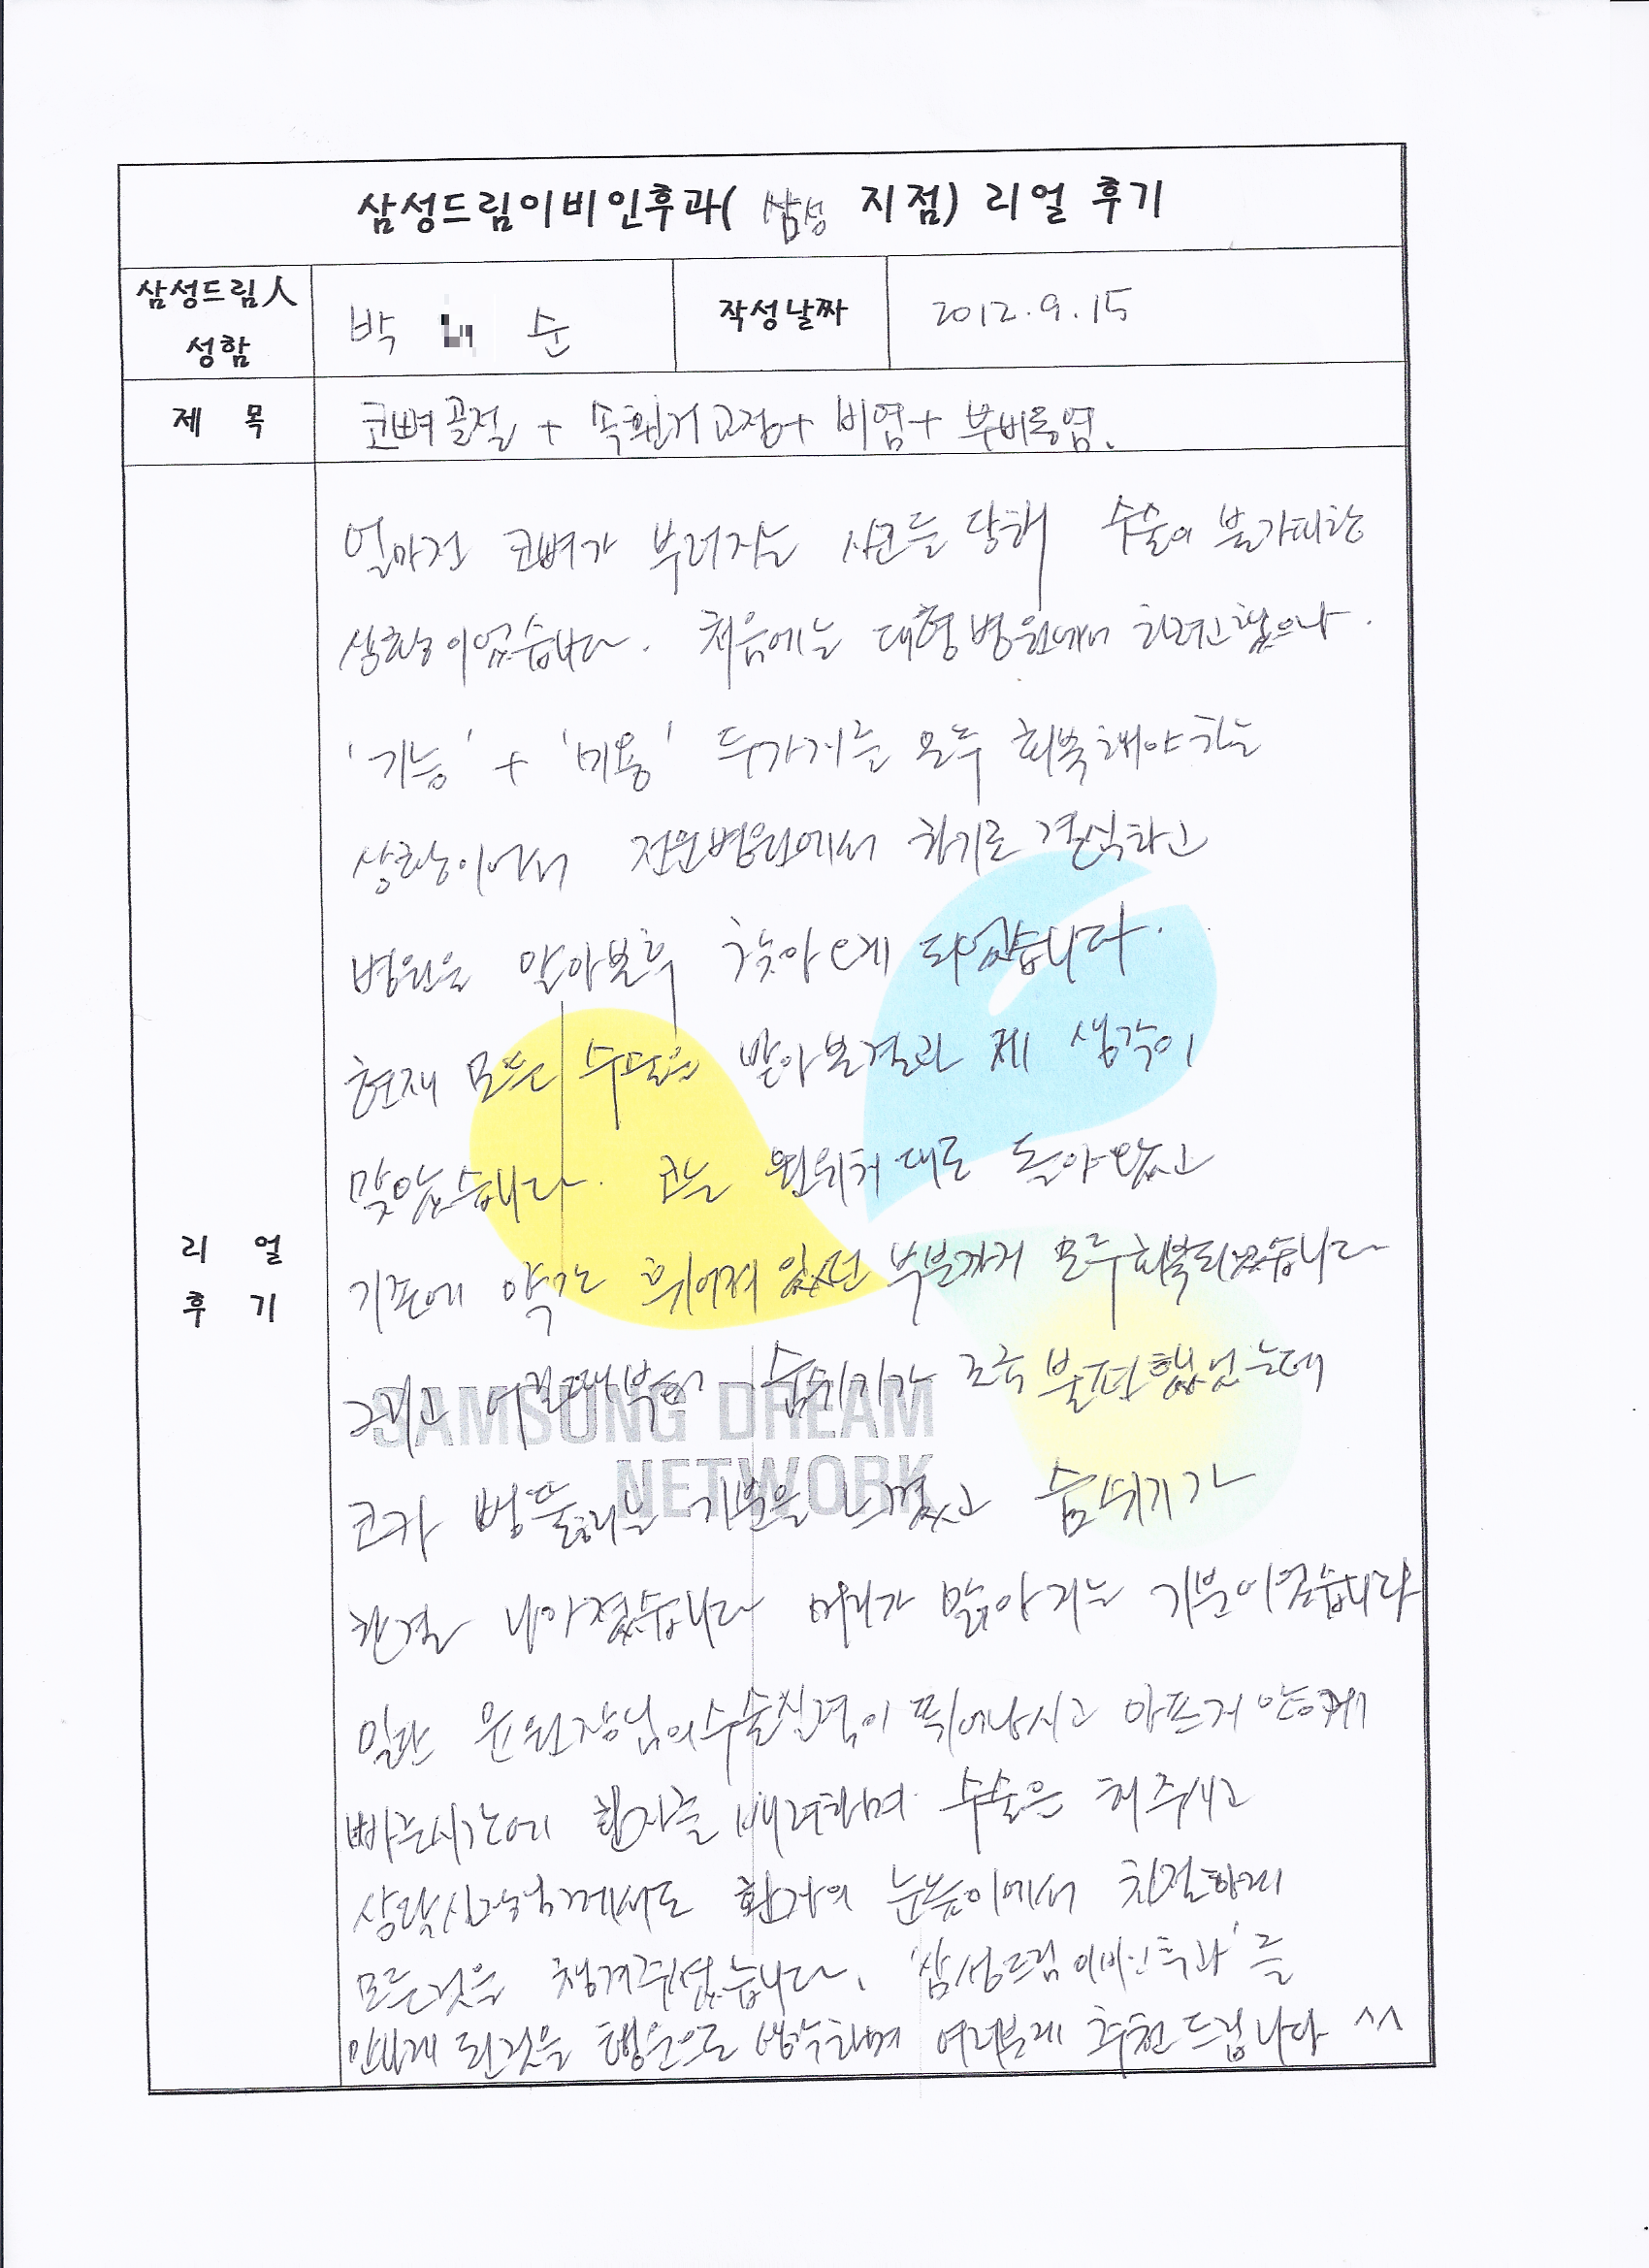 삼성드림이비인후과( 삼성 지점) 리얼 후기
삼성드림人
성함
박 순
작성날짜
2012.9.15
제 목
코뼈골절 + 속휜거교정+ 비염+ 부비동염.
리 얼
후 기
얼마전 코뼈가 부러지는 사고를 당해 수술이 불가피한
상황이었습니다. 처음에는 대형병원에서 하려고했으나.
'기능' + '미용' 두가지를 모두 회복해야하는
상황이어서 전문병원에서 하기로 결심하고
병원을 알아본후 찾아오게 되었습니다.
현재 모든 수술을 받아본결과 제 생각이
맞았습니다. 코는 원위치대로 돌아왔고
기존에 약간 휘어져 있던 부분까지 모두회복되었습니다
그리고 어릴때부터 숨쉬기가 조금 불편했었는데
코가 뻥뚫리는 기분을 느꼈고 숨쉬기가
한결 나아졌습니다 머리가 맑아지는 기분이었습니다
일단 윤원장님의수술실력이 뛰어나시고 아프지 않게
빠른시간에 환자를 배려하며 수술을 해주시고
상담실장님께서도 환자의 눈높이에서 친절하게
모든것을 챙겨주셨습니다. '삼성드림이비인후과'를
만나게 된것을 행운으로 생각하며 여러분께 추천드립니다 ^^
SAMSUNG DREAM
NETWORK